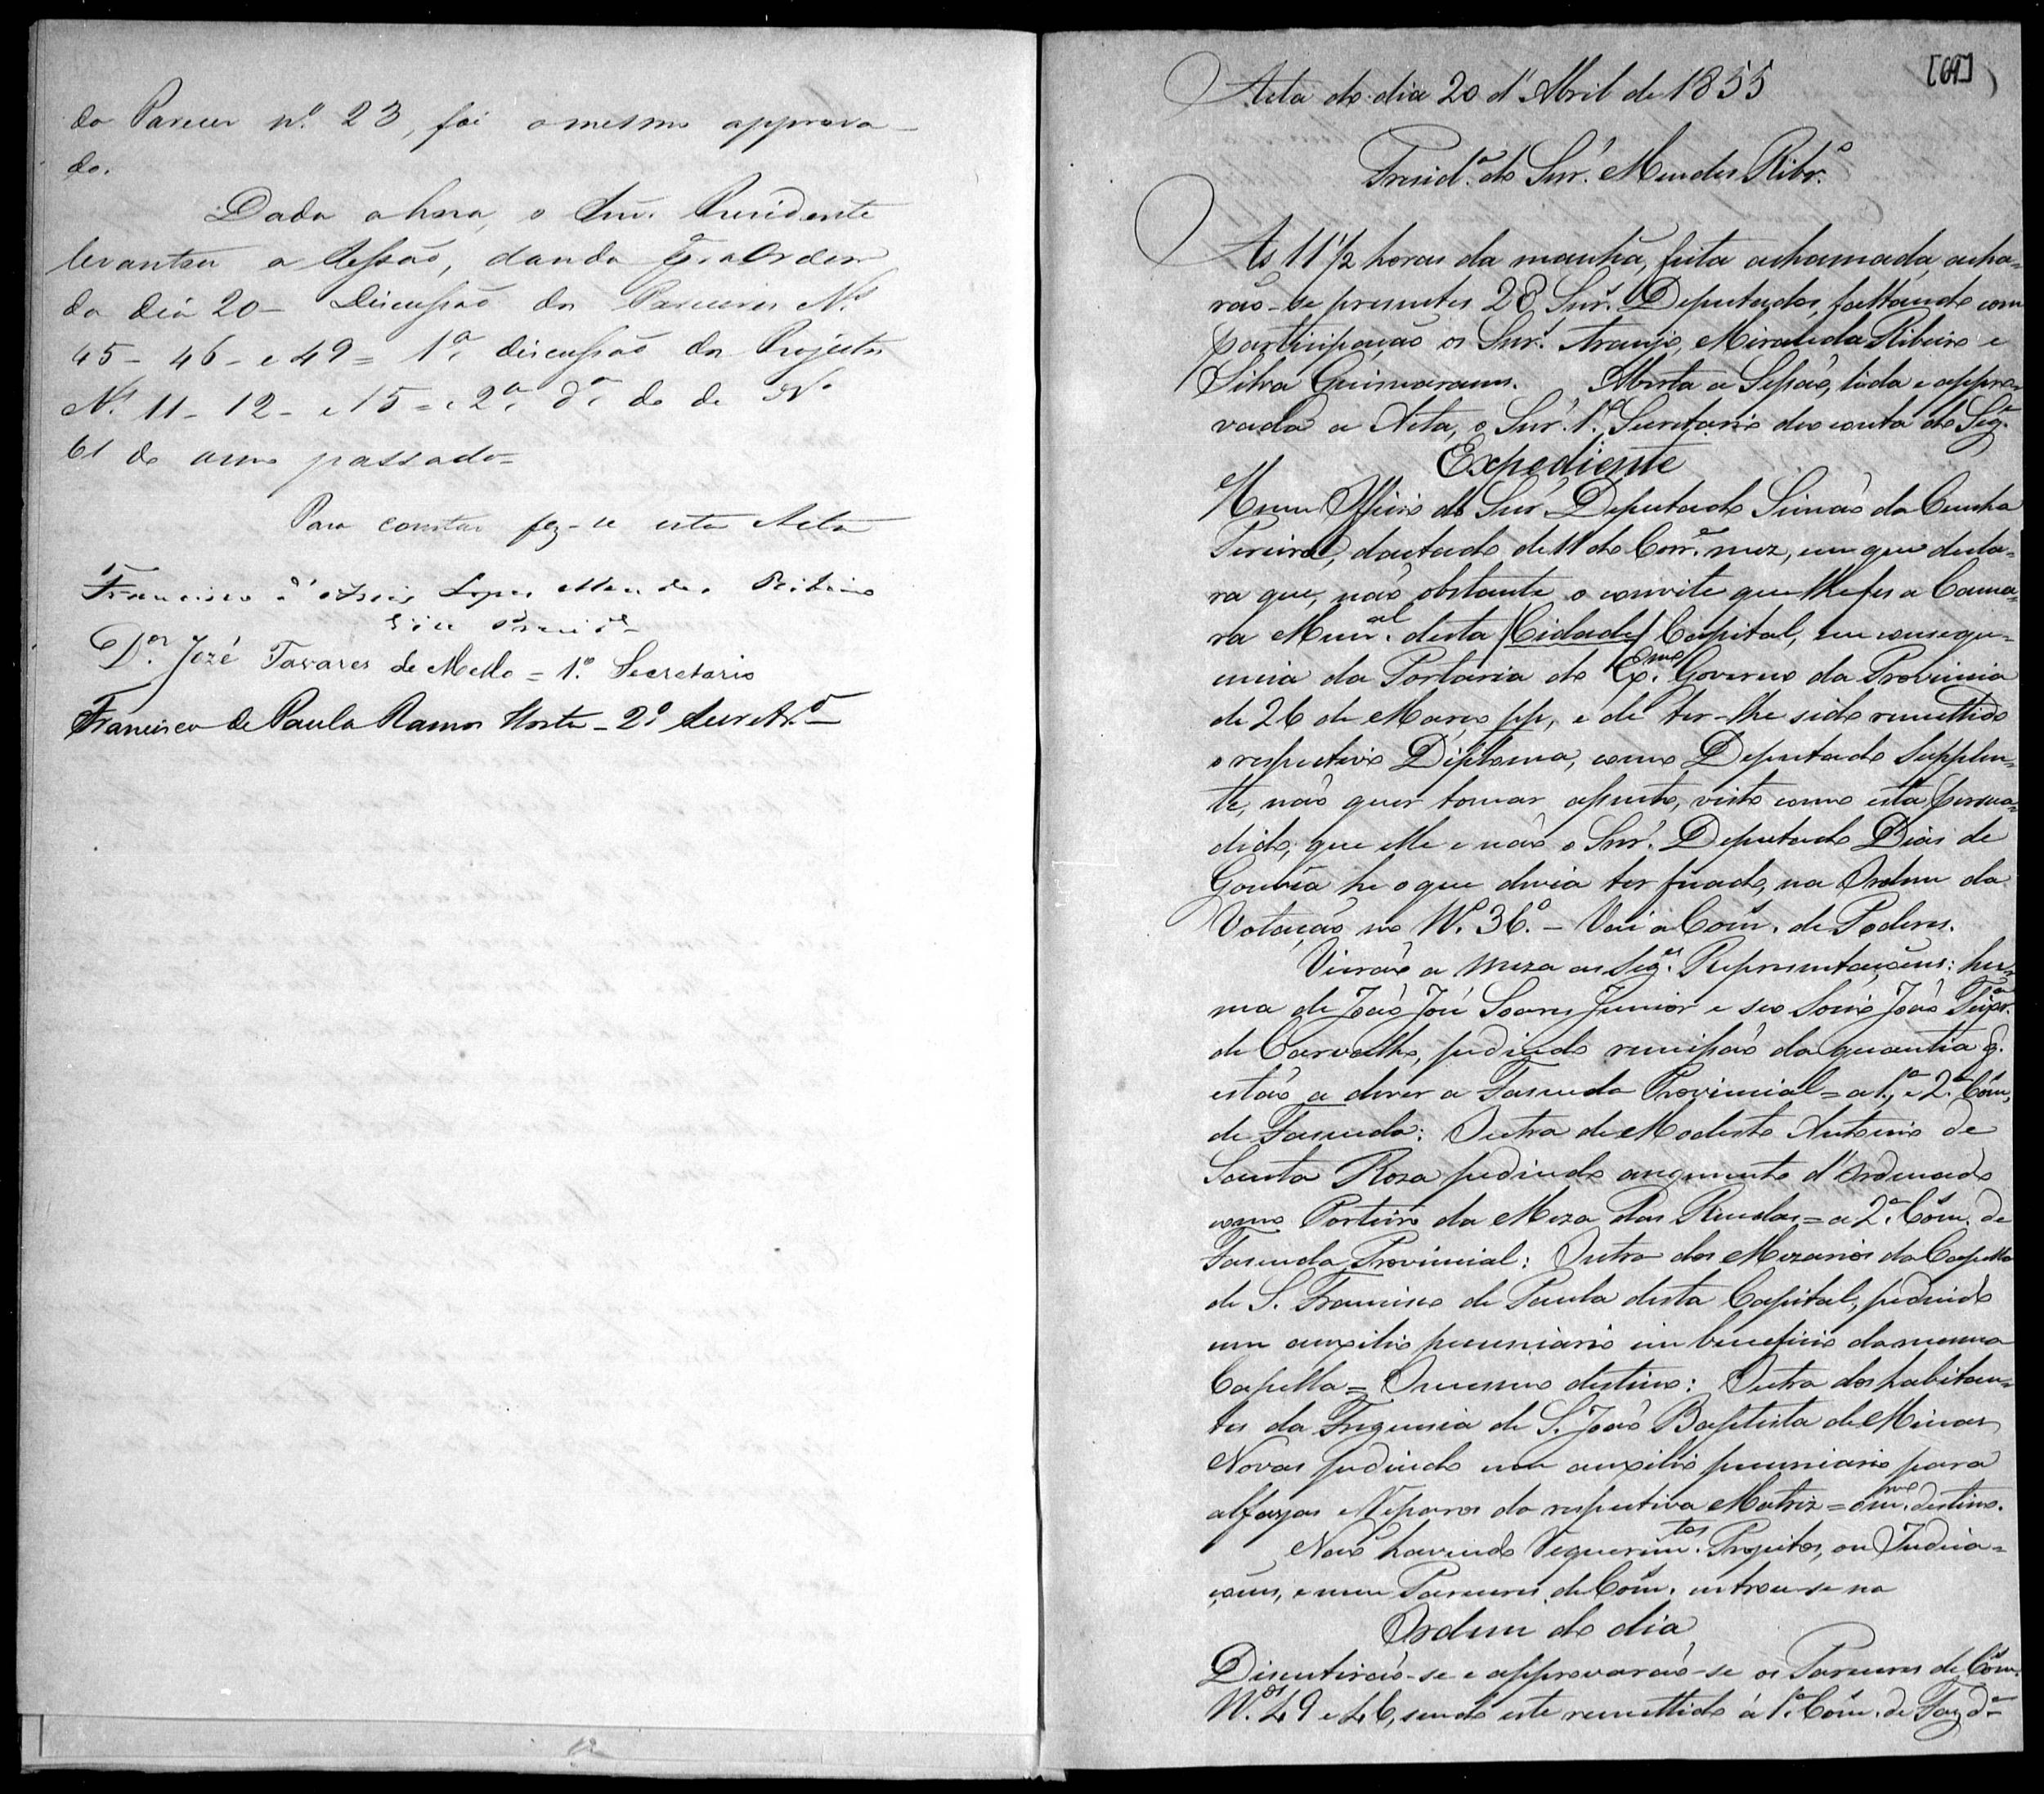 do Parecer nº 23, foi o mesmo approva-
do.
Dada a hora, o Snr. Presidente
levantou a Sessão, dando pª a Ordem
do dia 20 - Discussão dos Pareceres Nos
45 - 46 - e 49 = 1ª discussão dos Projectos
Nos 11 - 12 - e 15 = e 2ª dª do de Nº
61 do anno passado =
Para constar fez-se esta Acta
Francisco d'Assis Lopes Mendes Ribeiro
Vice Presidᵉ
Dor José Tavares de Mello = 1º Secretario
Francisco de Paula Ramos Horta - 2º Secretrº
[69]
Acta do dia 20 d'Abril de 1855
Presidª do Snr. Mendes Ribrº
As 11 1/2 horas da manhã, feita a chamada, acha-
rão-se presentes 28 Snrs. Deputados, faltando com
participação os Snrs. Araujo, Miranda Ribeiro e
Silva Guimaraens. Aberta a Sessão, lida e appro-
vada a Acta, o Snr. 1º Secretario deo conta do Segᵉ
Expediente
Hum Officio do Snr. Deputado Simão da Cunha
Pereira, dactado de 11 do Corrᵉ mez, em que decla-
ra que, não obstante o convite que lhe fes a Cama-
ra Munal desta (Cidade) Capital, em consequ-
encia da Portaria do Exmo Governo da Provincia
de 26 de Março pp, e de ter-lhe sido remettido
o respectivo Diploma, como Deputado Supplen-
te, não quer tomar assento, visto como está persua-
dido, que elle e não o Snr. Deputado Dias de
Gouvêa he o que devia ter ficado, na Ordem da
Votação no Nº 36º - Vai a Com. de Poderes.
Vierão a meza as Segᵉˢ Representaçoens: hu-
ma de João José Soares Junior e seo Socio João Teixrª
de Carvalho, pedindo remissão da quantia q.
estão a dever a Fasenda Provincial = a 1ª e 2ª Com.
de Fasenda: Outra de Modesto Antonio de
Santa Rosa pedindo augmento d'Ordenado
como Porteiro da Meza das Rendas = a 2ª Com. de
Fasenda Provincial: Outra dos Mezarios da Capella
de S. Francisco de Paula desta Capital, pedindo
um auxilio pecuniario em beneficio da mesma
Capella = O mesmo destino: Outra dos habitan-
tes da Freguesia de S. João Baptista de Minas
Novas pedindo um auxilio pecuniario para
alfayas e Reparos da respectiva Matriz = o mmo destino.
Não havendo Requerimtos Projectos, ou Indica-
çoens, e nem Pareceres de Com. entrou-se na
Ordem do dia
Discutirão-se e approvarão-se os Pareceres de Com.
Nos 49 e 46, sendo este remettido á 1ª Com. de Fazdª